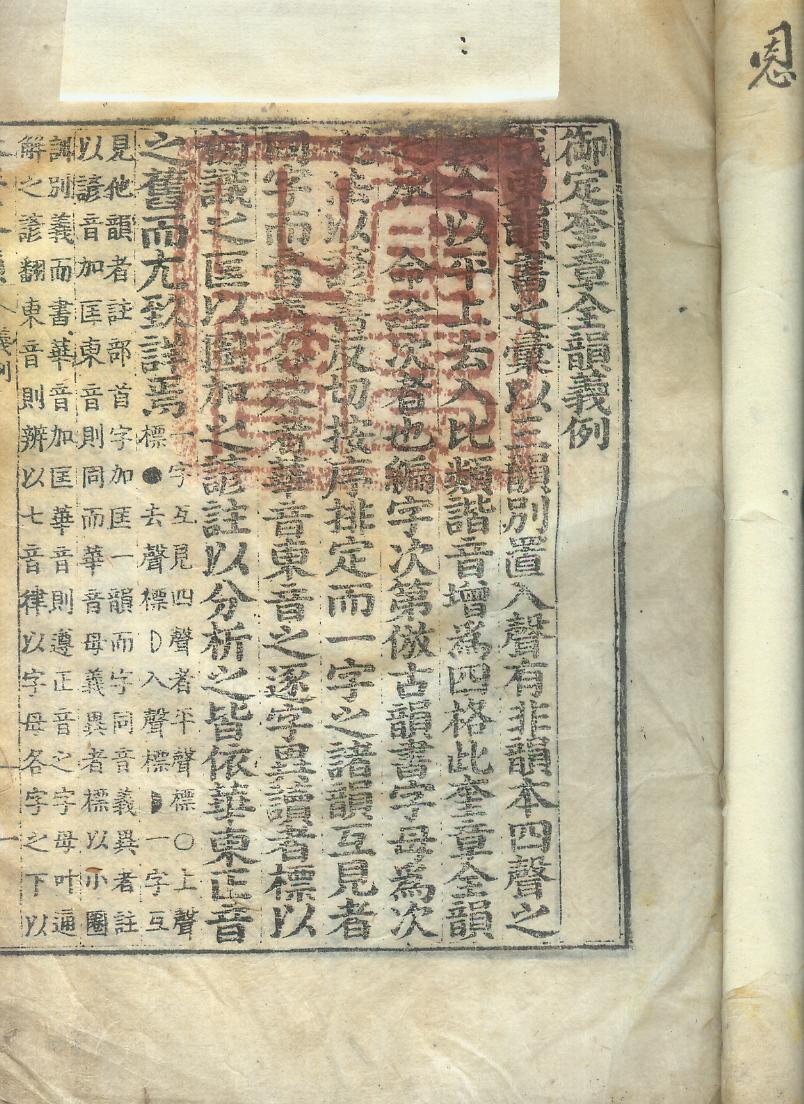 恩
御定奎章全韻義例
東韻書之彙以三韻別置入聲有非韻本四聲之
今以平上去入比類諧音增爲四格此奎章全韻
承 命詮次者也編字次第倣古韻書字母爲次
法以諺書反切按序排定而一字之諸韻互見者
同字而音義各殊者華音東音之逐字異讀者標以
議之匡以圈加之諺註以分析之皆依華東正音
之舊而尤致詳焉
一字互見四聲者平聲標○上聲
標●去聲標◗入聲標◗一字互
見他韻者註部首字加匡一韻而字同音義異者註
以諺音加匡東音則同而華音母義異者標以小圈
訓別義而書華音加匡華音則遵正音之字母叶通
解之諺翻東音則辨以七音律以字母各字之下以